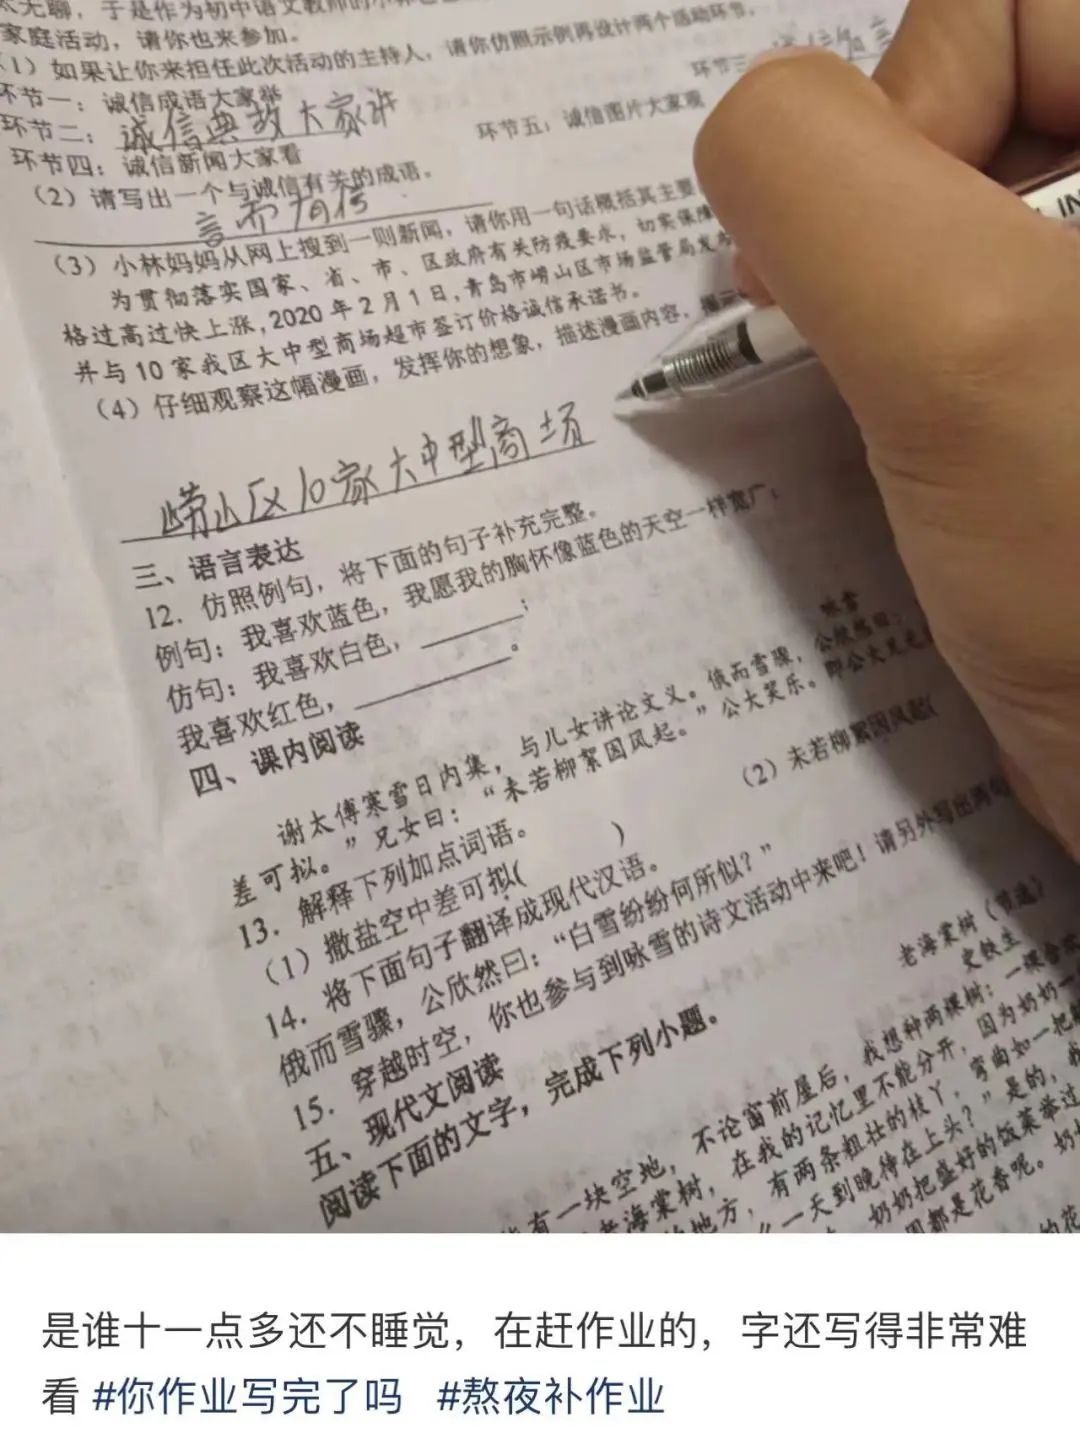 太无聊，于是作为初中语文教师的小林
家庭活动，请你也来参加。
（1）如果让你来担任此次活动的主持人，请你仿照示例再设计两个活动环节。
环节一：诚信成语大家举
环节三：
环节二：诚信典故大家讲
环节五：诚信图片大家观
环节四：诚信新闻大家看
（2）请写出一个与诚信有关的成语。
言而有信
（3）小林妈妈从网上搜到一则新闻，请你用一句话概括其主要
为贯彻落实国家、省、市、区政府有关防疫要求，切实保障
格过高过快上涨，2020年2月1日，青岛市崂山区市场监管局发布
并与10家我区大中型商场超市签订价格诚信承诺书。
（4）仔细观察这幅漫画，发挥你的想象，描述漫画内容，揭示
崂山区10家大中型商场
三、语言表达
12．仿照例句，将下面的句子补充完整。
例句：我喜欢蓝色，我愿我的胸怀像蓝色的天空一样宽广；
仿句：我喜欢白色，________；
我喜欢红色，________。
四、课内阅读
咏雪
谢太傅寒雪日内集，与儿女讲论文义。俄而雪骤，公欣然曰：
差可拟。”兄女曰：“未若柳絮因风起。”公大笑乐。即公大兄无
13．解释下列加点词语。
（1）撒盐空中差可拟(　　)
（2）未若柳絮因风起(
14．将下面句子翻译成现代汉语。
俄而雪骤，公欣然曰：“白雪纷纷何所似？”
15．穿越时空，你也参与到咏雪的诗文活动中来吧！请另外写出两句
五、现代文阅读
阅读下面的文字，完成下列小题。
老海棠树（节选）
史铁生
有一块空地，不论窗前屋后，我想种两棵树：一棵合欢
老海棠树，在我的记忆里不能分开，因为奶奶一
地方，有两条粗壮的枝丫，弯曲如一把
“一天到晚待在上头？”是的，我
奶奶把盛好的饭菜举过
周都是花香呢。奶奶
的花
是谁十一点多还不睡觉，在赶作业的，字还写得非常难
看 #你作业写完了吗 #熬夜补作业